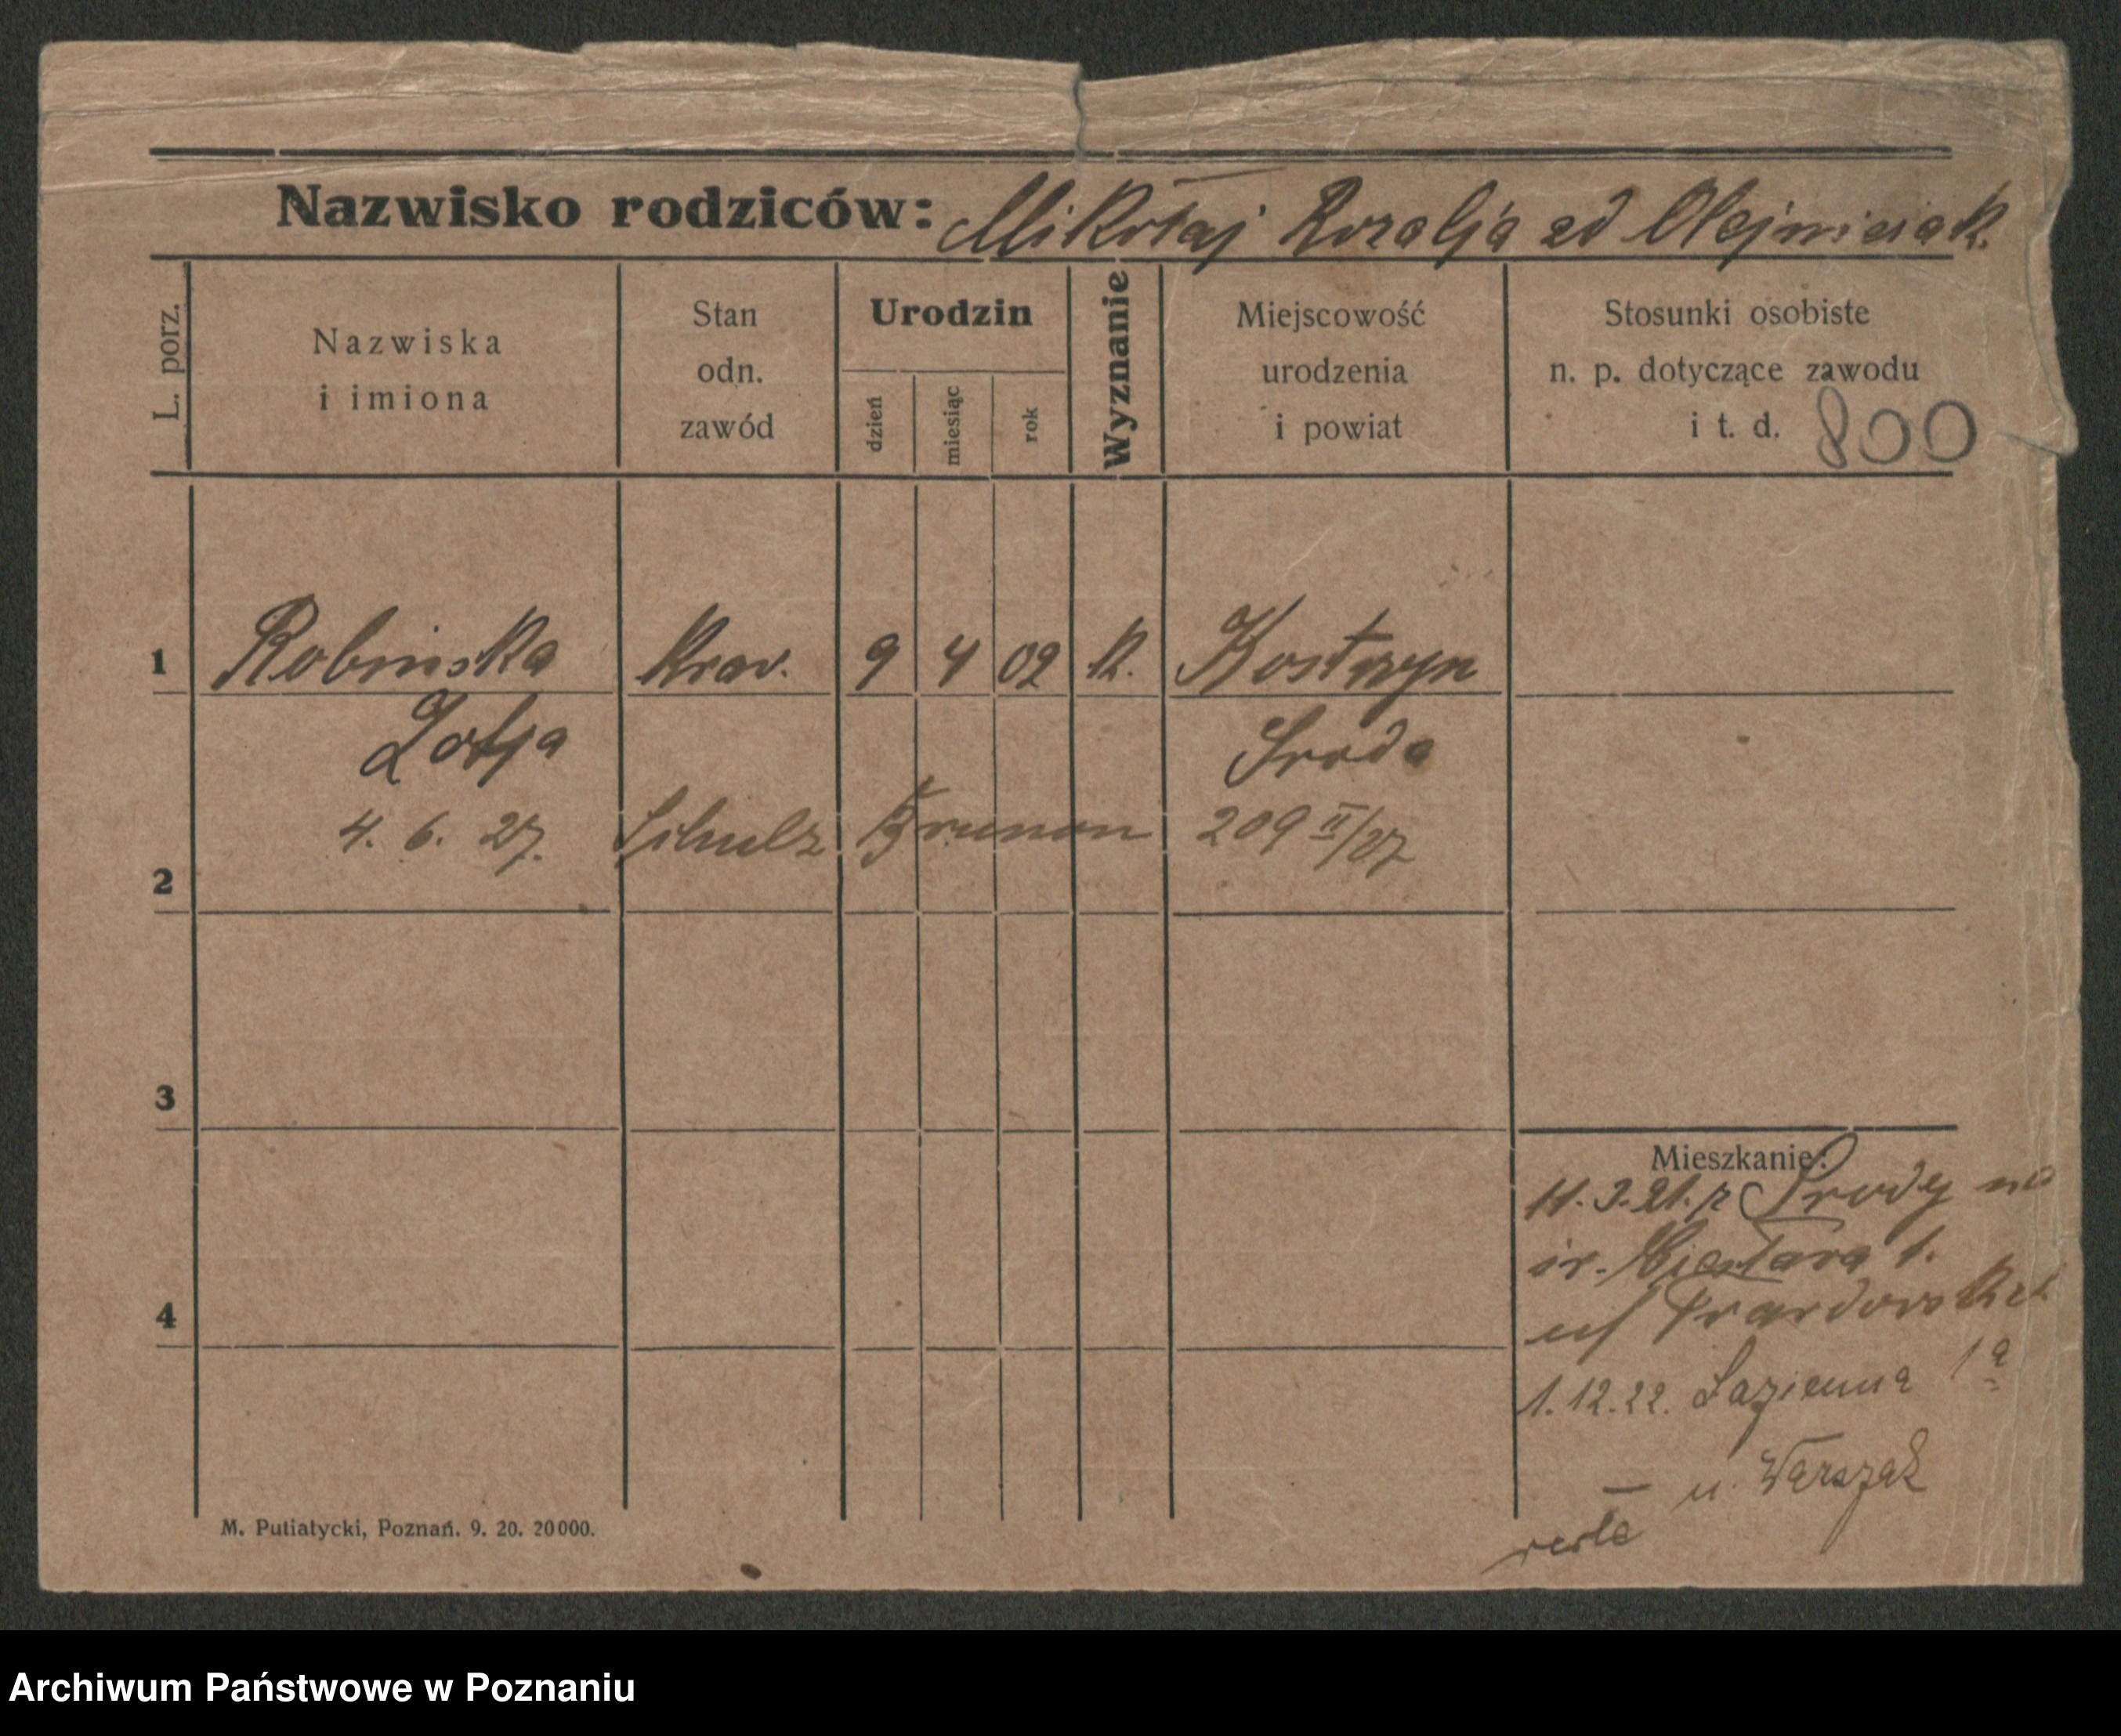 Nazwisko rodziców: Mikołaj Rozalja zd Olejniczak.
L. porz.
Nazwiska
i imiona
Stan
odn.
zawód
Urodzin
dzień
miesiąc
rok
Wyznanie
Miejscowość
urodzenia
i powiat
Stosunki osobiste
n. p. dotyczące zawodu
i t. d. 800
1 Robinska kraw. 9 4 02 k. Kostrzyn
Zofja Sroda
4. 6. 27. Schulz Brunon 209 II/27
2
3
Mieszkanie:
11. 3. 21. z Srody na
św. 1.
4
1. 12. 22. Łazienna 1a
u. Warszak
M. Putiatycki, Poznań. 9. 20. 20000.
Archiwum Państwowe w Poznaniu